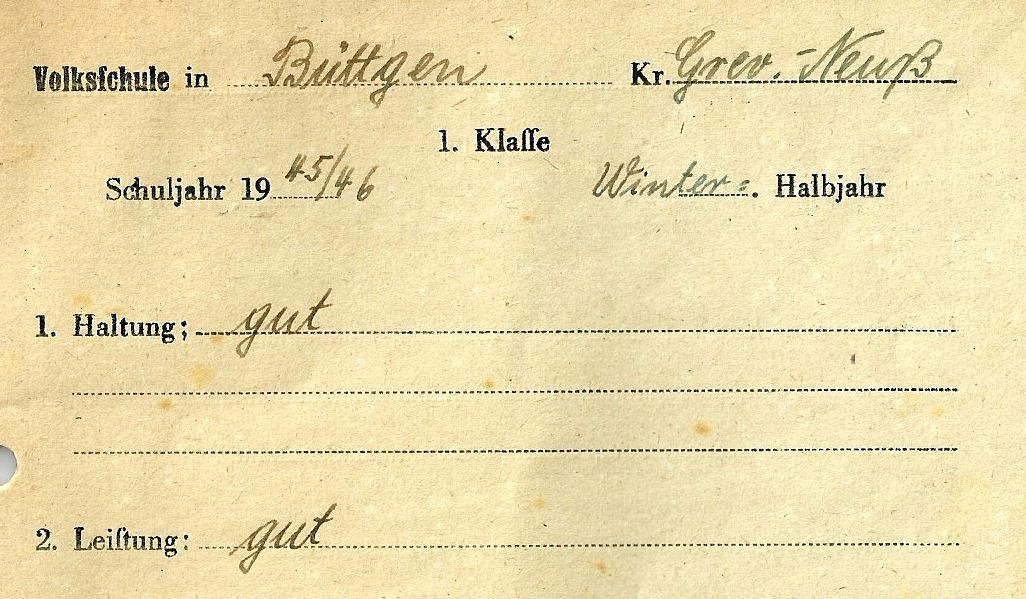 Volksſchule in Büttgen Kr. Grev.-Neuß
1. Klaſſe
Schuljahr 19 45/46 Winter=. Halbjahr
1. Haltung; gut
2. Leiſtung: gut